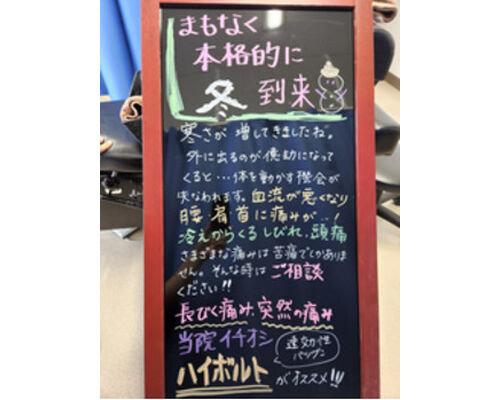 まもなく
本格的に
冬 到来
寒さが 増してきましたね。
外に出るのが億劫になって
くると…体を動かす機会が
失なわれます。血流が悪くなり
腰、肩首に痛みが…!
冷えからくるしびれ、頭痛
さまざまな痛みは苦痛でしかありま
せん。そんな時は ご相談
ください!!
長びく痛み、突然の痛み
当院イチオシ
速効性
バツグン
ハイボルト がオススメ!!!